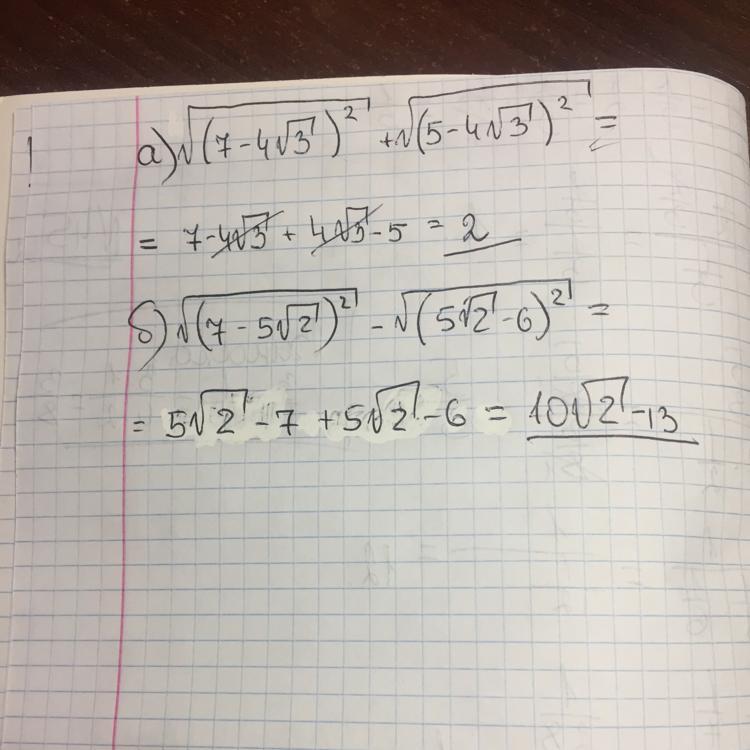 а) √(7-4√3)² + √(5-4√3)² =
= 7-4√3 + 4√3-5 = 2
б) √(7-5√2)² - √(5√2-6)² =
= 5√2-7 +5√2-6 = 10√2-13